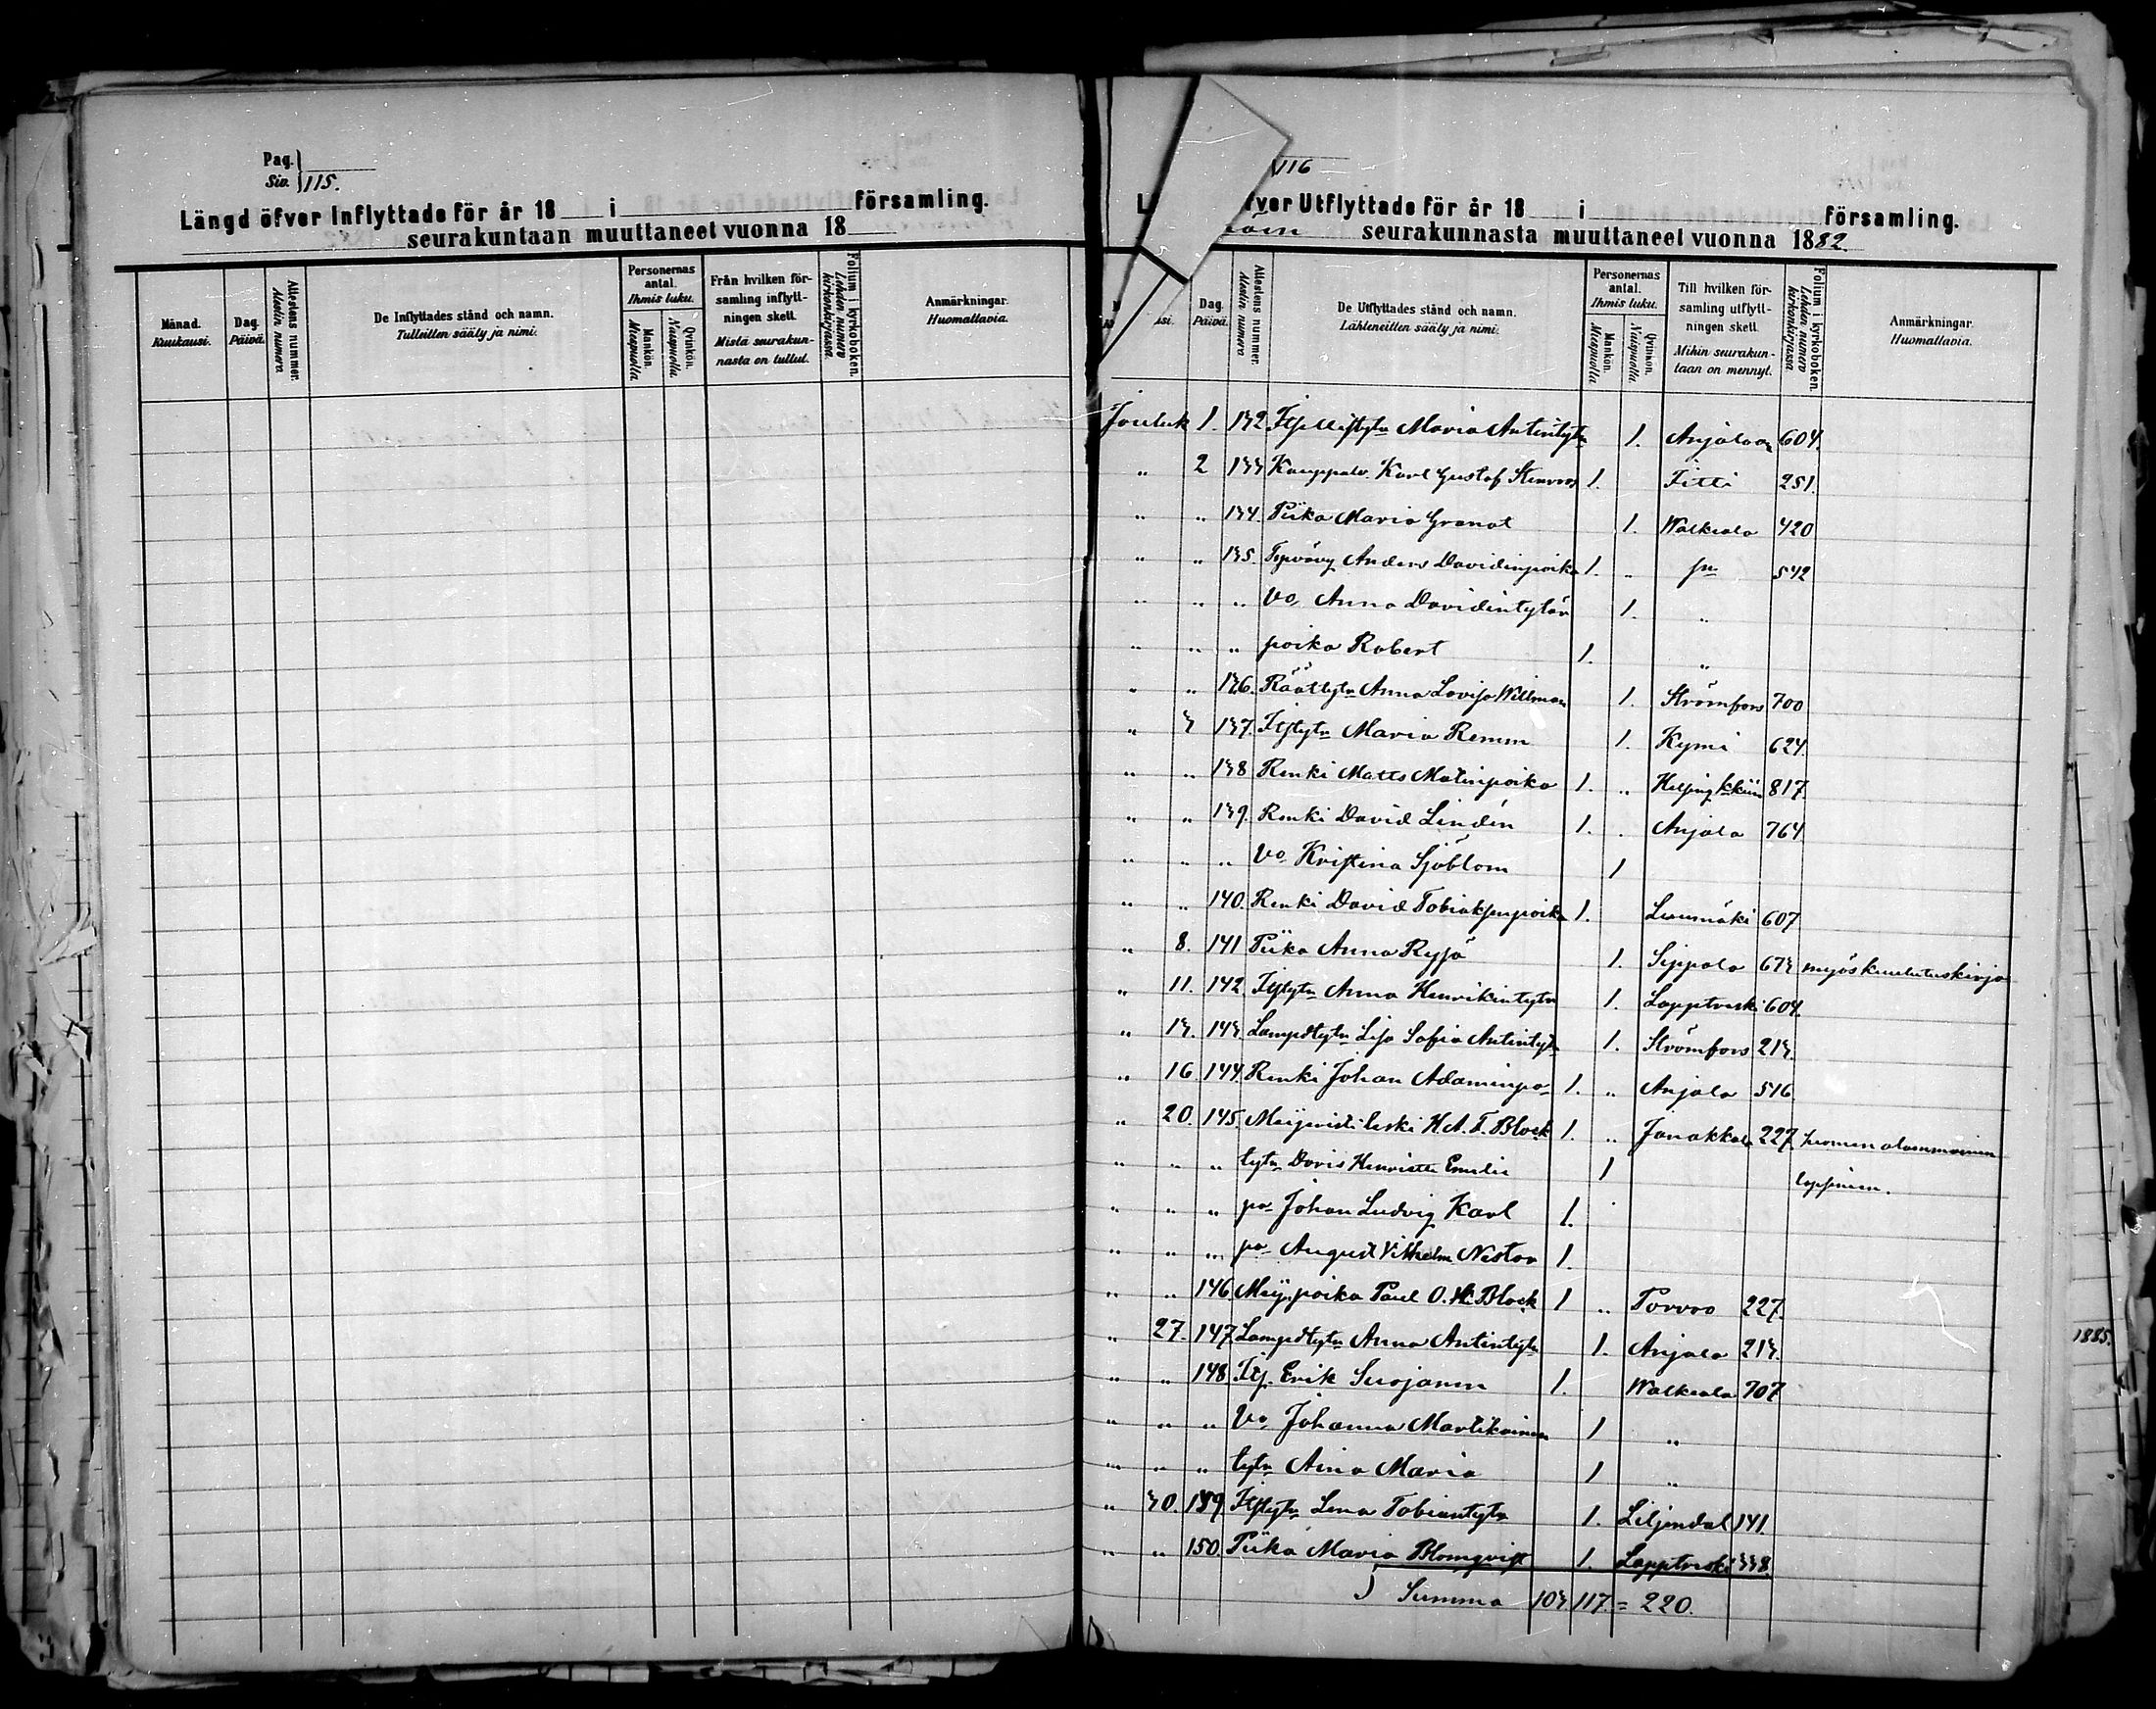 Pag.
Siv. 115.
Längd öfver Inflyttade för år 18 i församling.
seurakuntaan muuttaneet vuonna 18
Månad. Kuukausi.
Dag. Päivä.
Attestens nummer. Atestin numero
De Inflyttades stånd och namn. Tulleitten sääty ja nimi.
Personernas antal. Ihmis luku.
Mankön. Miespuolia
Qvinkön. Naispuolia
Från hvilken för-
samling inflytt-
ningen skett.
Mistä seurakun-
nasta on tullut.
Folium i kyrkoboken. Lehden numero kirkonkirjassa.
Anmärkningar. Huomattavia.
116
fver Utflyttade för år 18 i församling.
seurakunnasta muuttaneet vuonna 1882.
Dag. Päivä.
Attestens nummer. Atestin numero
De Utflyttades stånd och namn. Lähteneitten sääty ja nimi.
Personernas antal. Ihmis luku.
Mankön. Miespuolia
Qvinkön. Naispuolia
Till hvilken för-
samling utflytt-
ningen skett.
Mihin seurakun-
taan on mennyt.
Folium i kyrkoboken. Lehden numero kirkonkirjassa
Anmärkningar. Huomattavia.
Jouluk 1. 132 Maria Antintytr 1. Anjalaan 604.
" 2 133 Kauppalv. Karl Gustaf Stenroos 1. Iitti 251.
" " 134. Piika Maria Granat 1. Walkeala 420
" " 135. Anders Davidinpoika 1. " 542
" " " Vo, Anna Davidintytär 1. "
" " " poika Robert 1. "
" " 136. Räättytr Anna Lovisa Willman 1. Strömfors 700
" 3 137. Itstytr Maria Remm 1. Kymi 624.
" " 138 Renki Matts Matinpoika 1. " 817.
" " 139. Renki David Lindén 1. Anjala 764
" " " Vo Kristina Sjöblom 1
" " 140. Renki David Tobiaksenpoika 1. Luumäki 607
" 8. 141 Piika Anna Rypä 1. Sippola 673 myös kuulutuskirja
" 11. 142. Itstytr Anna Henrikintytr 1. Lapptreski 604.
" 13. 143. Lampdtytr Lisa Sofia Antintytr 1. Strömfors 213.
" 16 144 Renki Johan Adaminpo 1. " Anjala 516
" 20. 145. leski H.A.F. Block 1. " Janakkala 227. Suomen alammainen
" " " tytr Doris Henriette Emilie 1
" " " po Johan Ludvig Karl 1.
" " " po August Vilhelm Nestor 1.
" " 146. poika Paul O. H. Block 1 " Porvoo 227.
" 27. 147. Lampdtytr Anna Antintytr 1. Anjala 213.
" " 148. Itj. Erik Suojanen 1. Walkeala 707
" " " Vo, Johanna Martikainen 1 "
" " " tytr Aina Maria 1 "
" 30. 149. Itstytr Lena Tobiantytr 1. Liljendal 141.
" " 150. Piika Maria Blomqvist 1. Lapptreski 338.
Summa 103. 117. = 220.
1885.